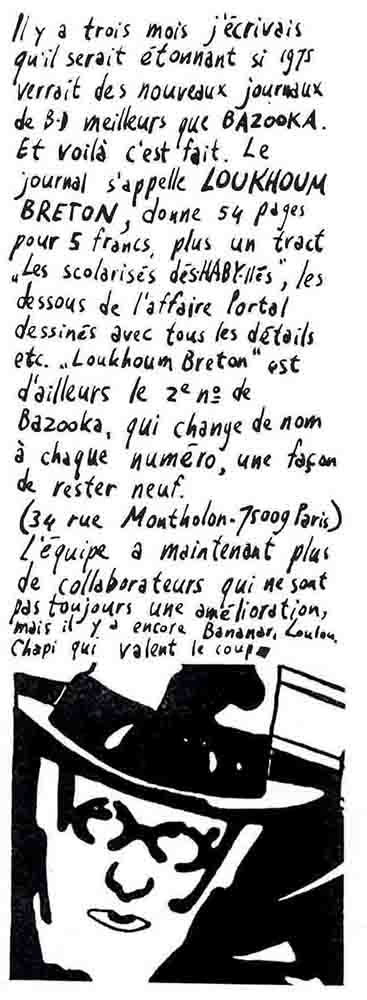 Il y a trois mois j'écrivais
qu'il serait étonnant si 1975
verrait des nouveaux journaux
de B-D meilleurs que BAZOOKA.
Et voilà c'est fait. Le
journal s'appelle LOUKHOUM
BRETON, donne 54 pages
pour 5 francs, plus un tract
„Les scolarisés désHABYllés", les
dessous de l'affaire Portal
dessinés avec tous les détails
etc. „Loukhoum Breton" est
d'ailleurs le 2e no de
Bazooka, qui change de nom
à chaque numéro, une façon
de rester neuf.
(34 rue Montholon-75009 Paris)
L'équipe a maintenant plus
de collaborateurs qui ne sont
pas toujours une amélioration,
mais il y a encore Bananar, Loulou,
Chapi qui valent le coup.